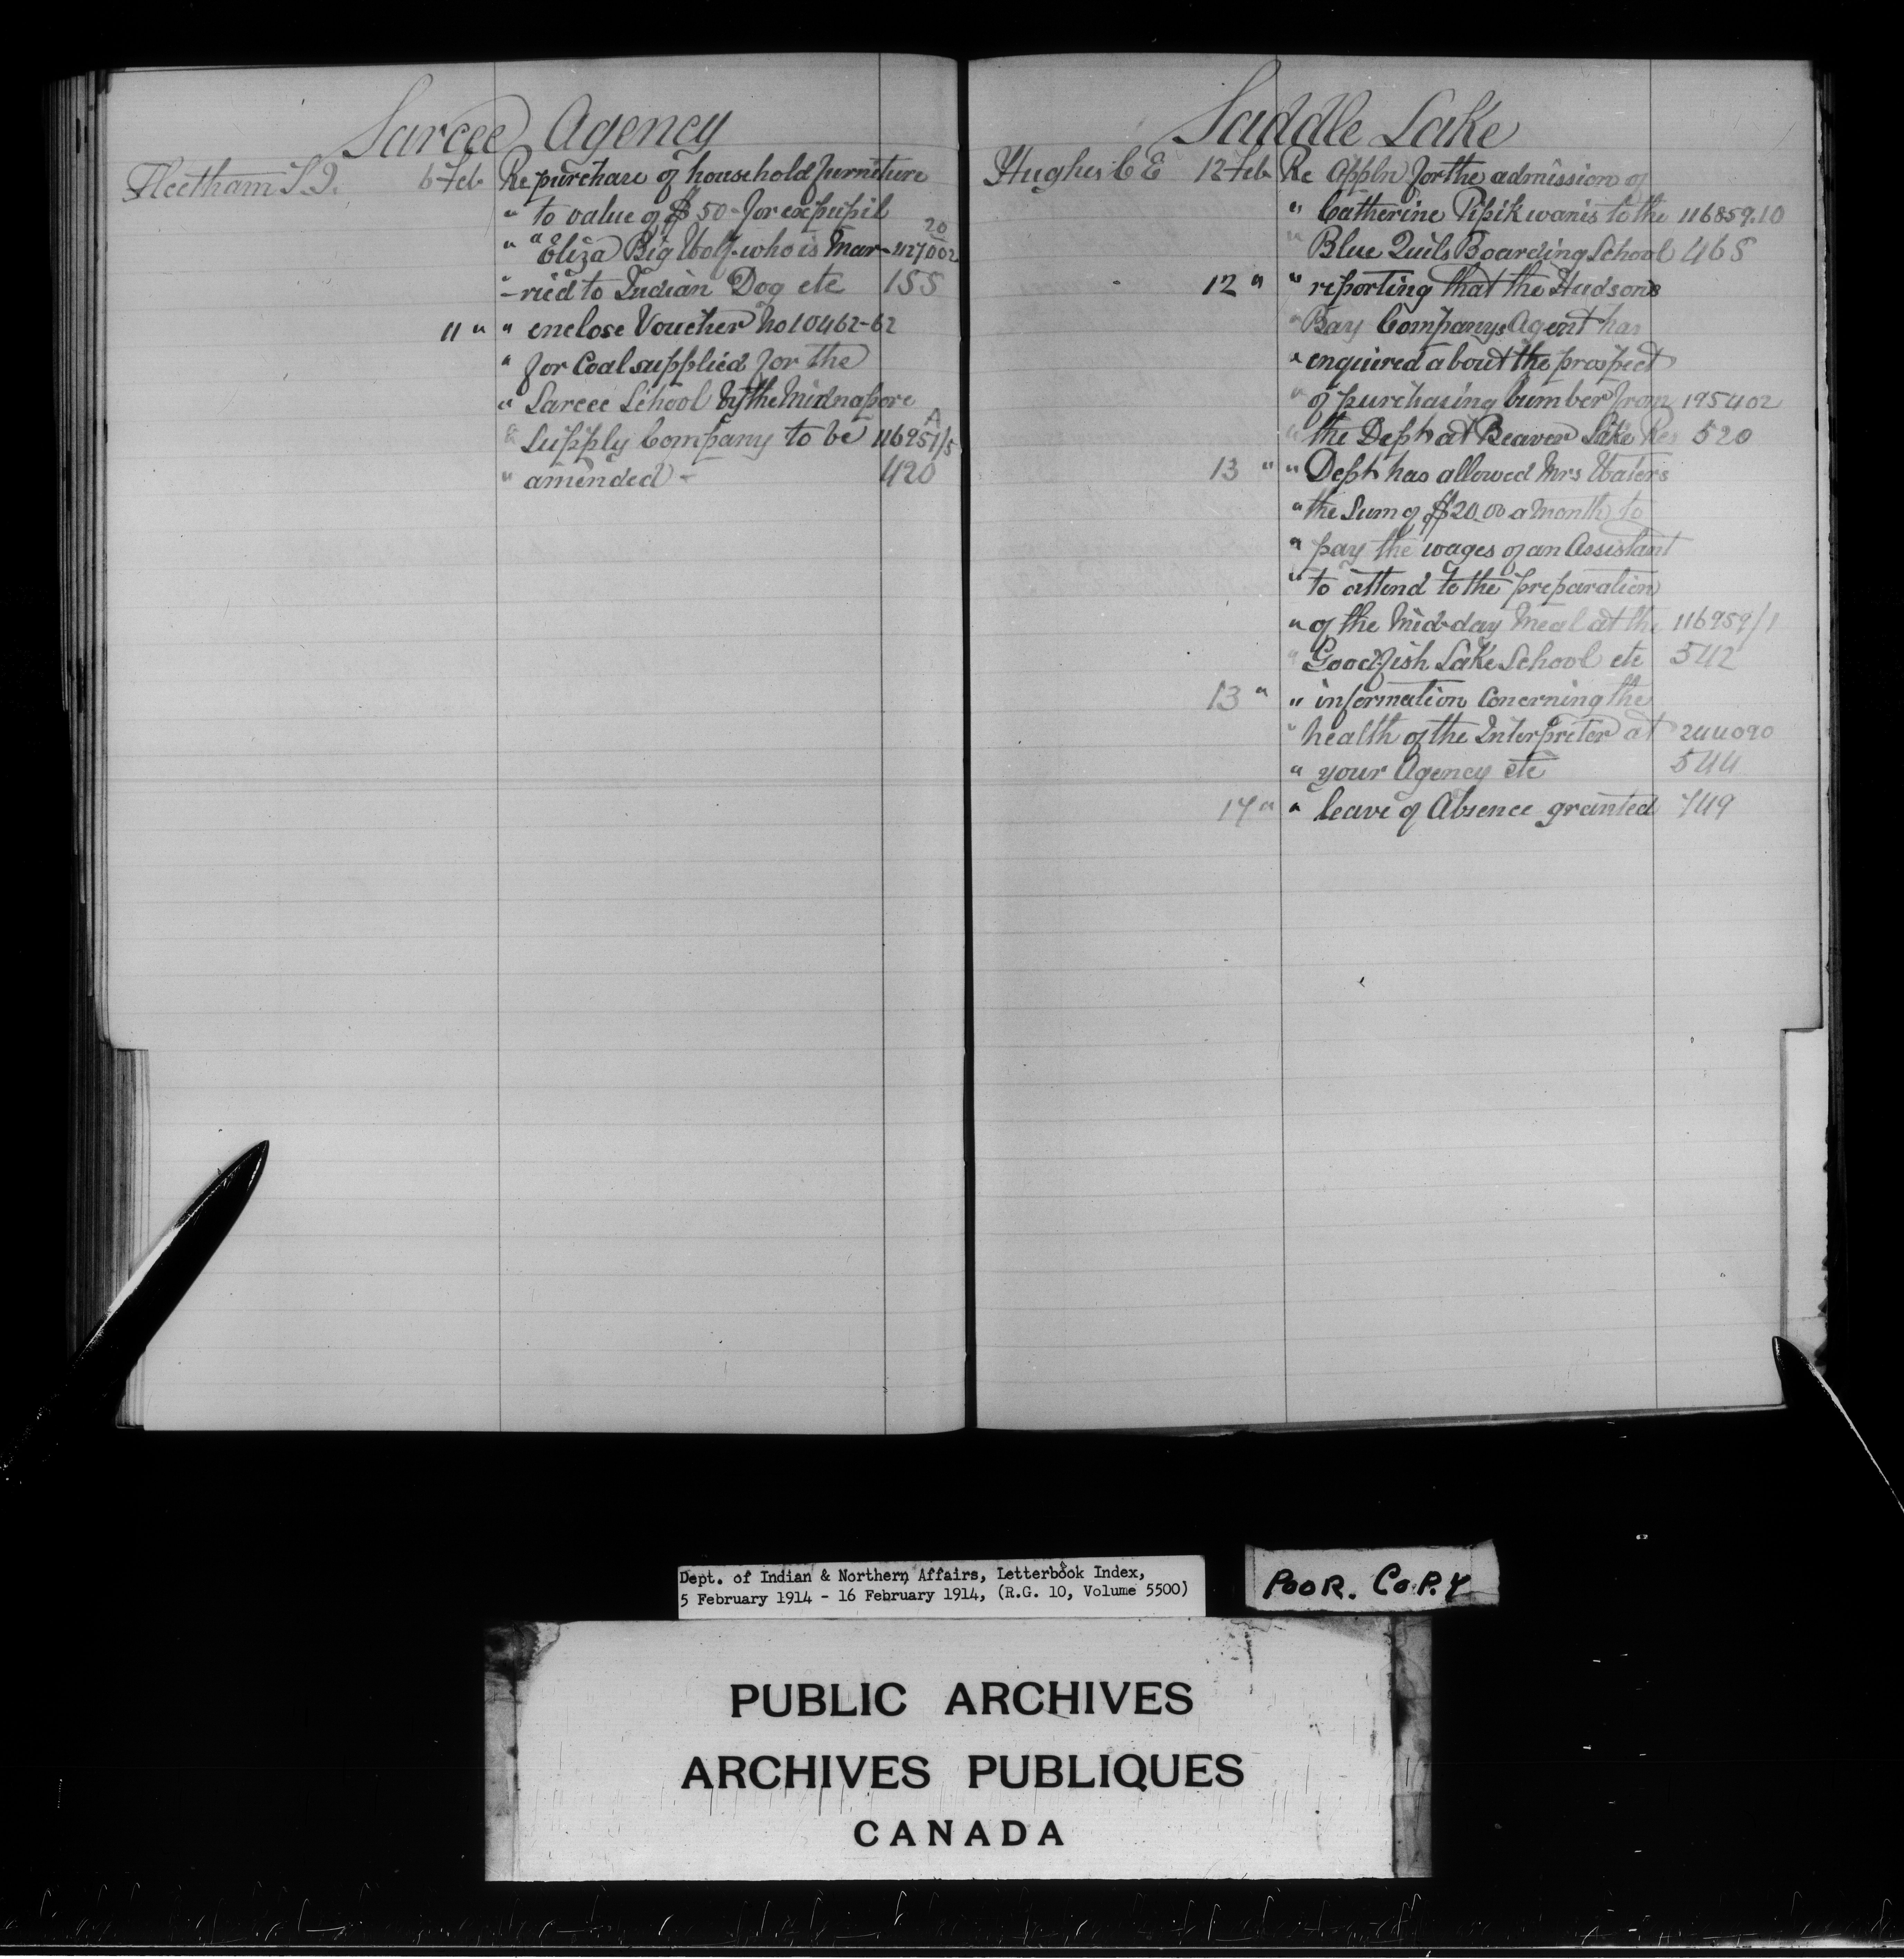 Sarcee Agency
Fleetham T.J. 6 Feb Re purchase of household furniture
" to value of $50- for ex pupil
" " Eliza Big Wolf who is Mar- 427002 20
" -ried to Indian Dog etc 155
11 " " enclose Voucher No 10462-62
" for Coal supplied for the
" Sarcee School by the Midnapore
" Supply Company to be 116951/5 A
" amended - 420
Saddle Lake
Hughes C E 12 Feb Re Appln for the admission of
" Catherine Pipikwanis to the 116859.10
" Blue Quils Boarding School 465
12 " " reporting that the Hudsons
" Bay Companys Agent has
" enquired about the prospect
" of purchasing lumber from 195402
" the Dept at Beaver Lake Res 520
13 " " Dept has allowed Mrs Waters
" the Sum of $20.00 a month to
" pay the wages of an Assistant
" to attend to the preparation
" of the Mid-day Meal at the 116959/1
" Goodfish Lake School etc 542
13 " " information concerning the
" health of the Interpreter at 244090
" your Agency etc 544
17 " " leave of Absence granted 749
Dept. of Indian & Northern Affairs, Letterbook Index,
5 February 1914 - 16 February 1914, (R.G. 10, Volume 5500)
POOR. COPY
PUBLIC ARCHIVES
ARCHIVES PUBLIQUES
CANADA